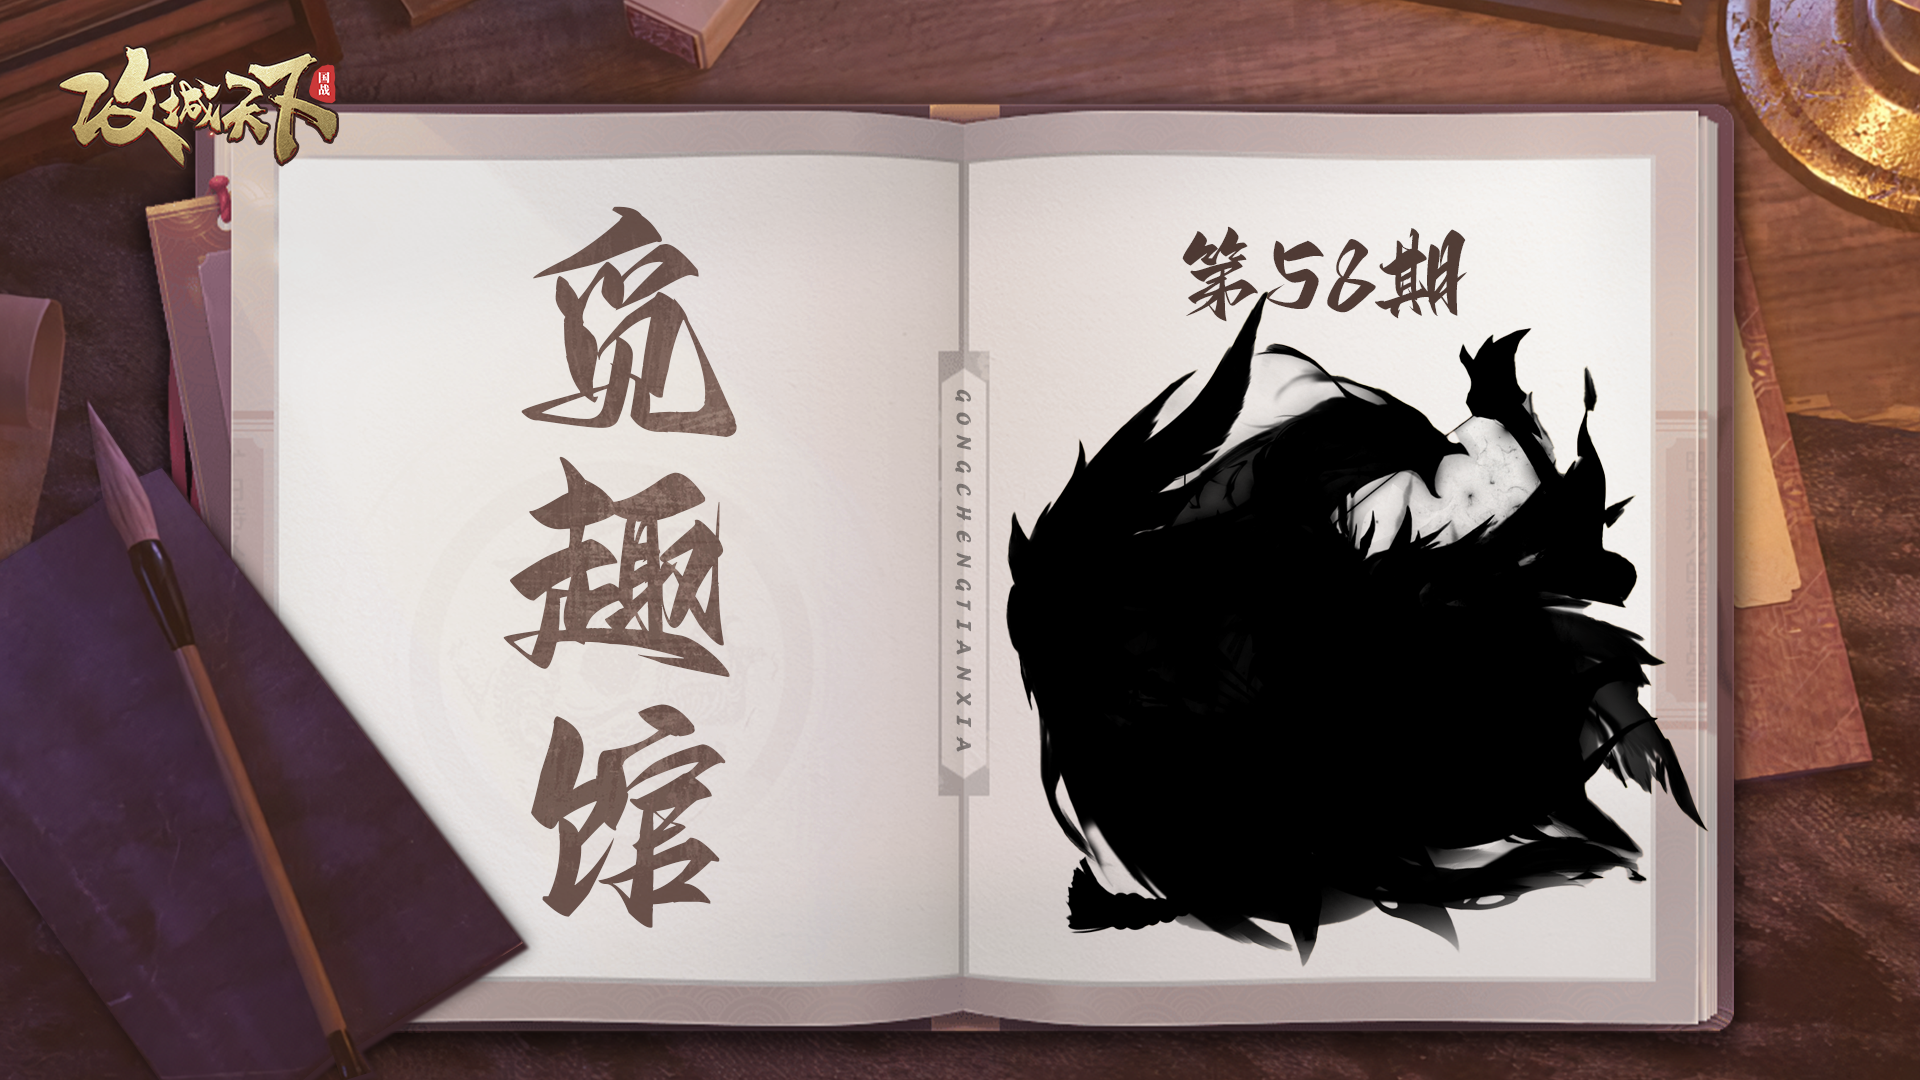 攻城天下
国战
觅趣馆
GONGCHENGTIANXIA
第58期